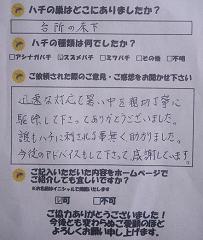 ハチの巣はどこにありましたか?
台所の床下
ハチの種類は何でしたか?
□アシナガバチ ☑スズメバチ □ミツバチ □その他 □不明
ご依頼された際のご意見・ご感想をお聞かせ下さい
迅速な対応で暑い中を親切丁寧に
駆除して下さってありがとうございました。
誰もハチに刺される事無く助かりました。
今後のアドバイスもして下さって感謝しています。
ご記入いただいた内容をホームページで
ご紹介しても宜しいですか?
※お名前はイニシャルで掲載いたします
☑可 □不可
ご協力ありがとうございました!
今後とも変わらぬご愛顧のほど
よろしくお願い申し上げます。